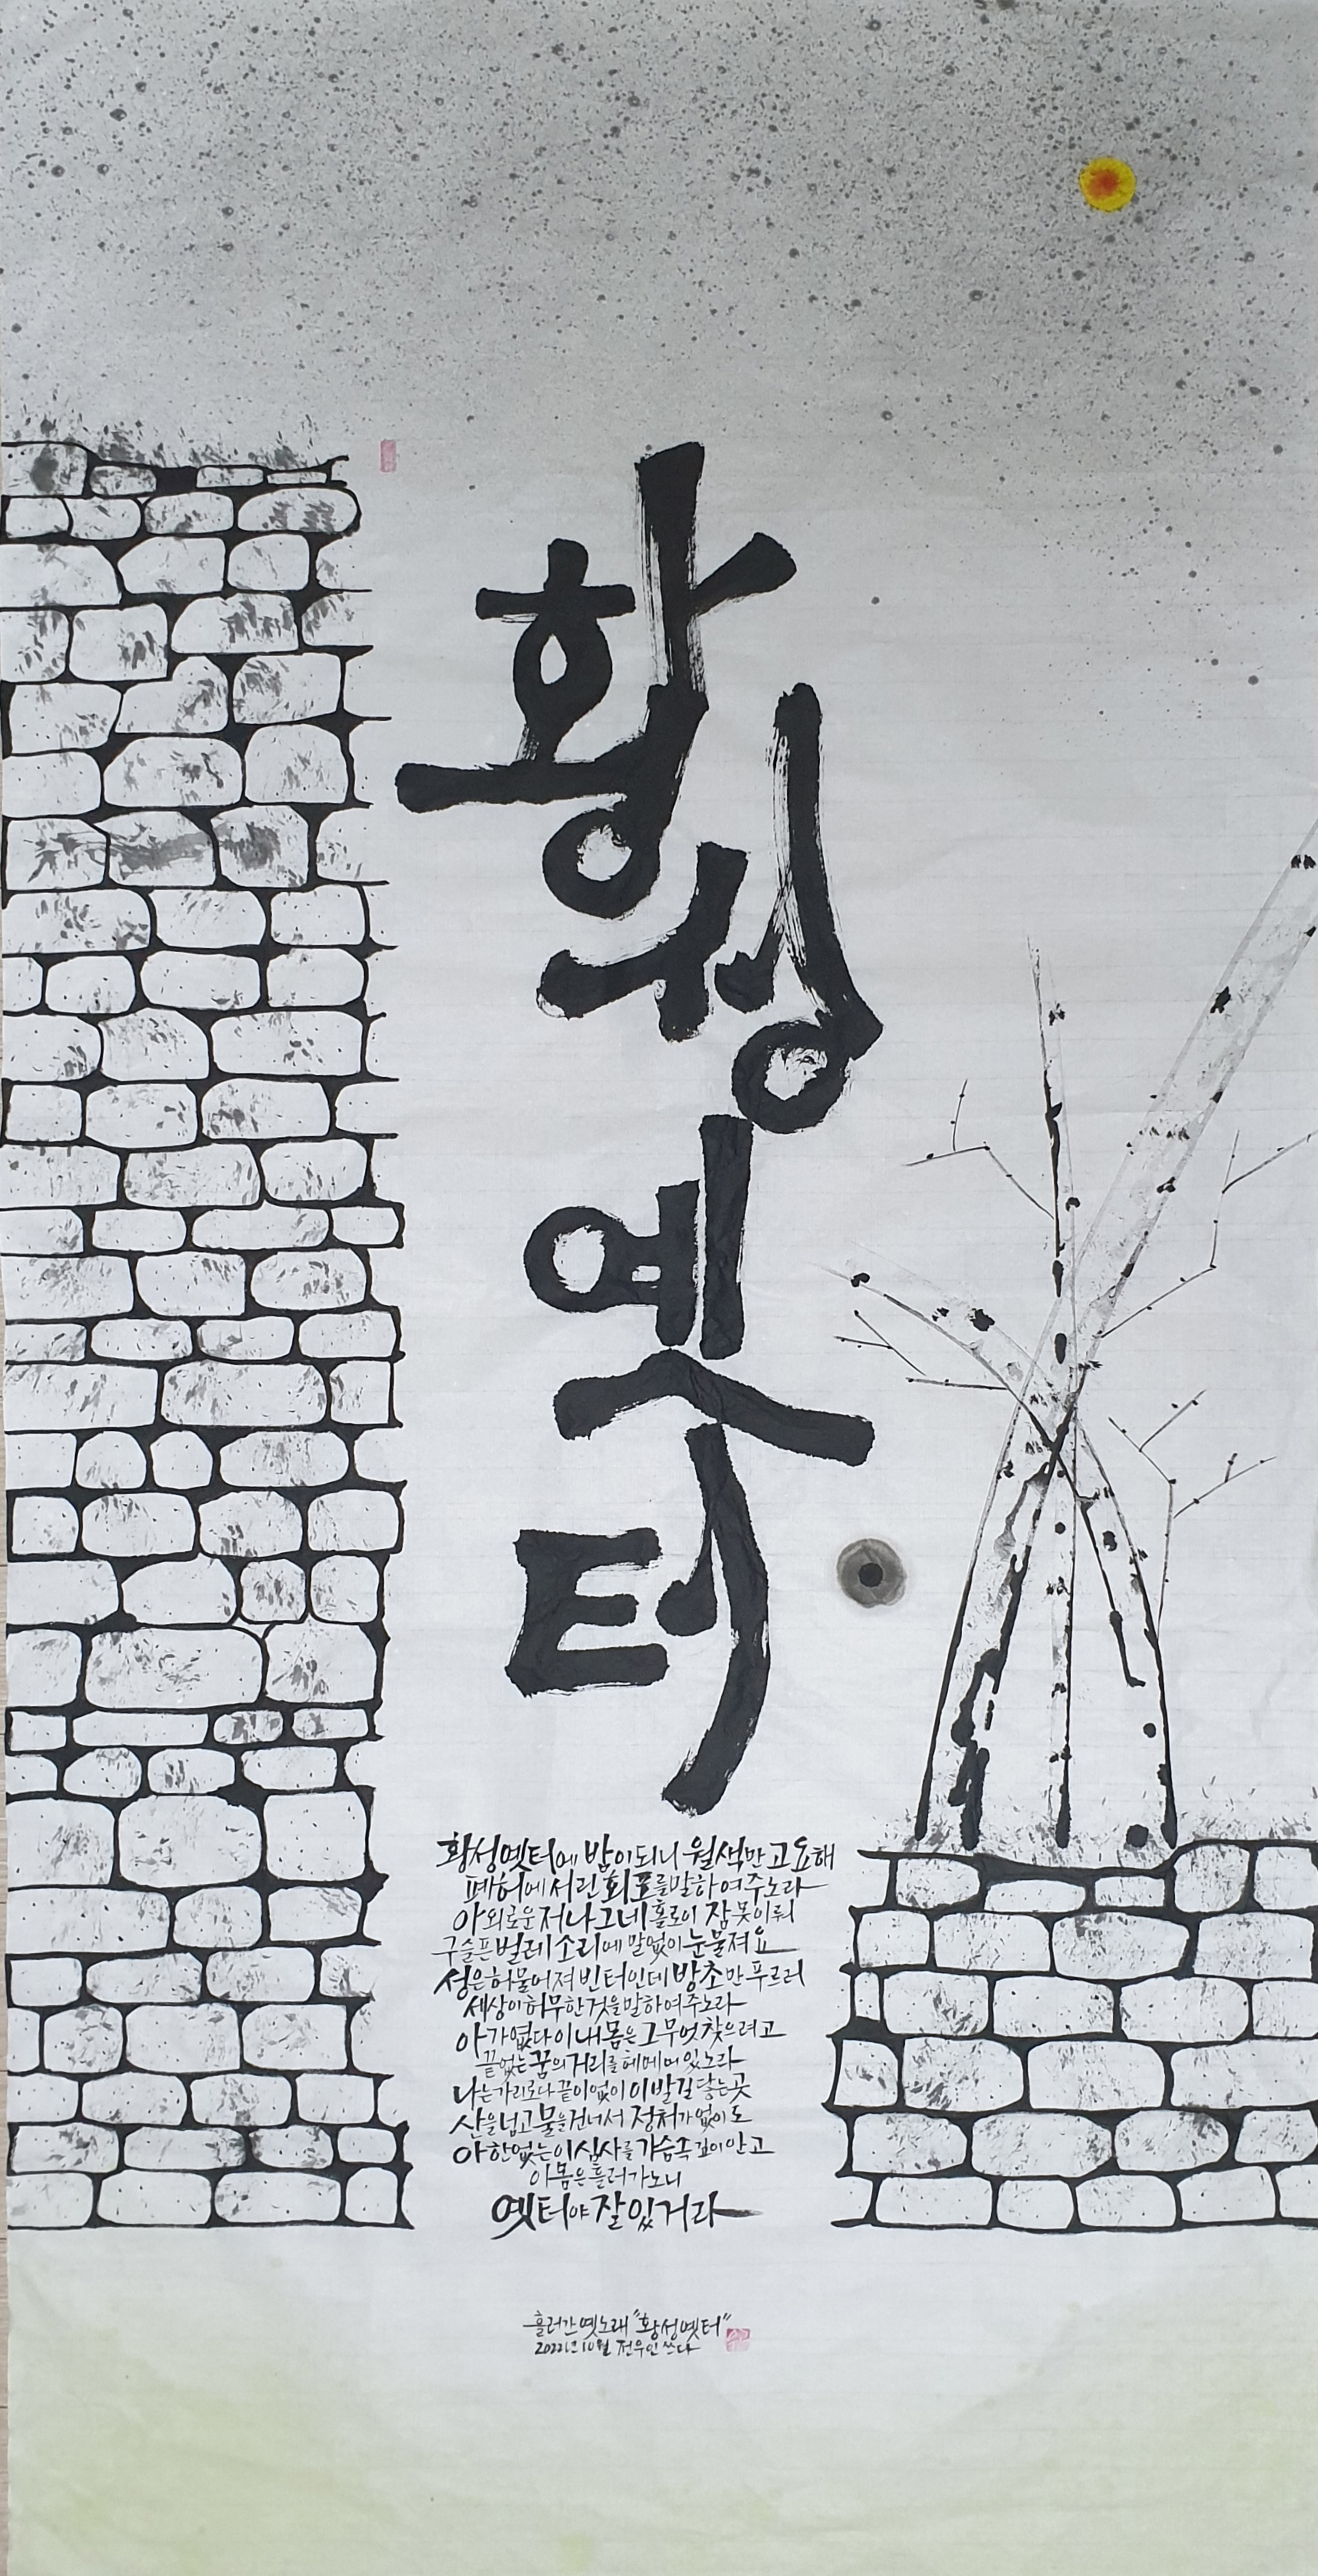 황성옛터
황성옛터에 밤이되니 월색만고요해
폐허에서린 회포를말하여주노라
아 외로운 저 나그네 홀로이 잠 못이뤄
구슬픈 벌레 소리에 말없이 눈물져요
성은허물어져 빈터인데 방초만 푸르러
세상이허무한것을말하여주노라
아 가엾다 이 내 몸은 그 무엇 찾으려고
끝없는 꿈의 거리를 헤메여 있노라
나는가리로다 끝이없이 이발길 닿는곳
산을넘고 물을건너서 정처가없이도
아 한없는 이 심사를 가슴속 깊이안고
이 몸은 흘러가노니
옛터야 잘 있거라
흘러간 옛노래 "황성옛터"
2022년 10월 전우인 쓰다